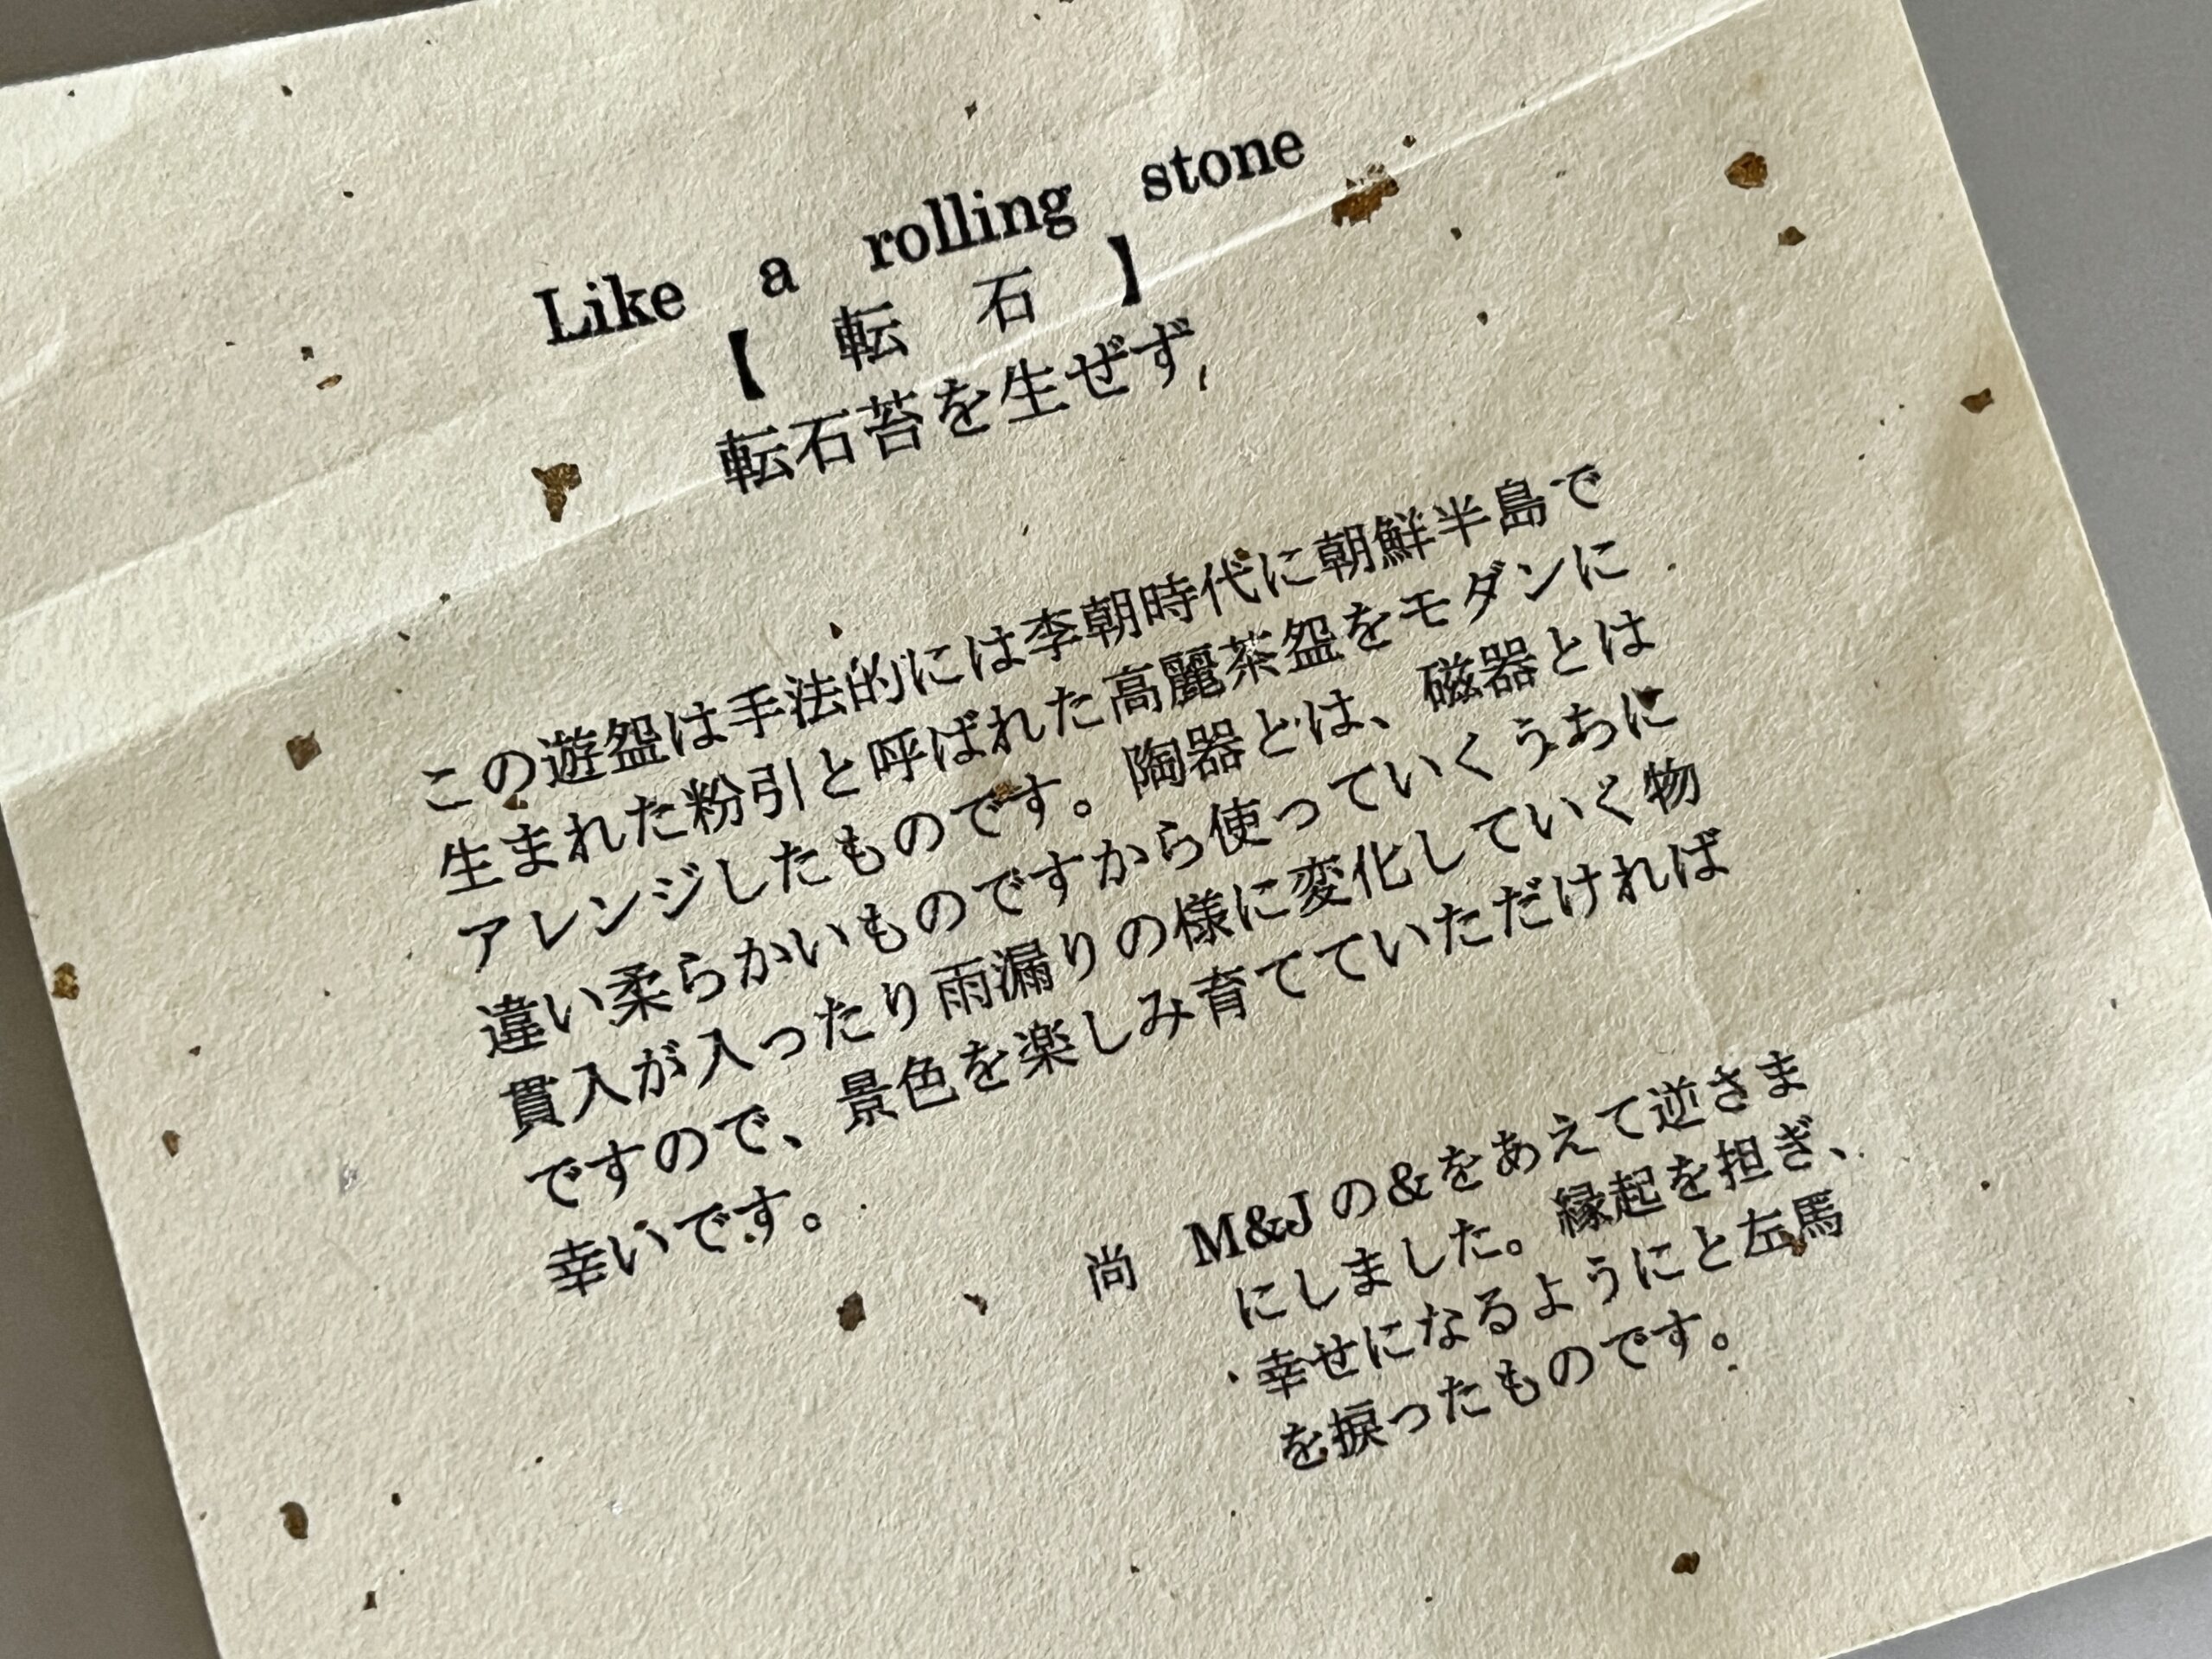 Like a rolling stone
【 転 石 】
転石苔を生ぜず
この遊盌は手法的には李朝時代に朝鮮半島で
生まれた粉引と呼ばれた高麗茶盌をモダンに
アレンジしたものです。陶器とは、磁器とは
違い柔らかいものですから使っていくうちに
貫入が入ったり雨漏りの様に変化していく物
ですので、景色を楽しみ育てていただければ
幸いです。
尚 M&Jの&をあえて逆さま
にしました。縁起を担ぎ、
幸せになるようにと左馬
を捩ったものです。